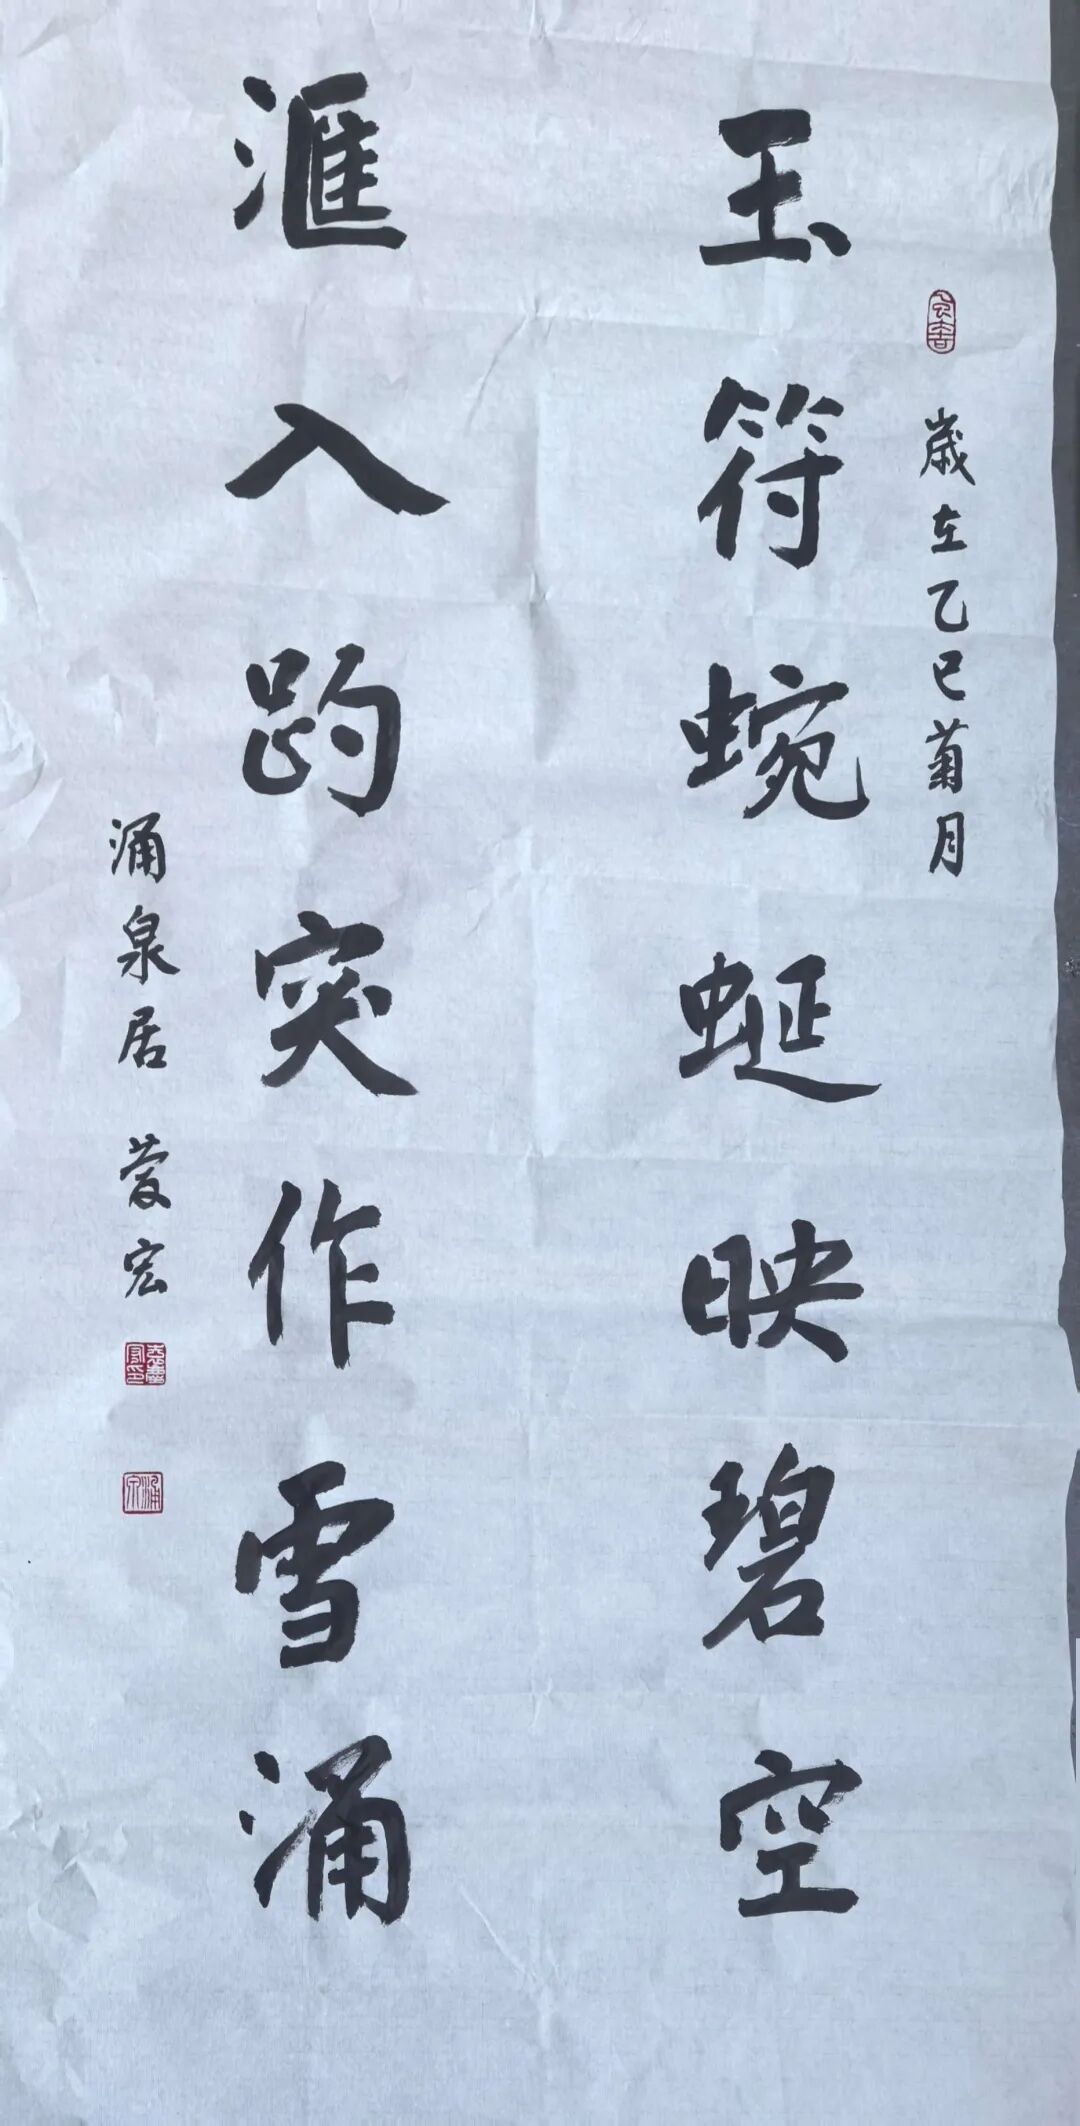 歲在乙巳菊月
玉符蜿蜒映碧空
滙入趵突作雪涌
涌泉居 宏